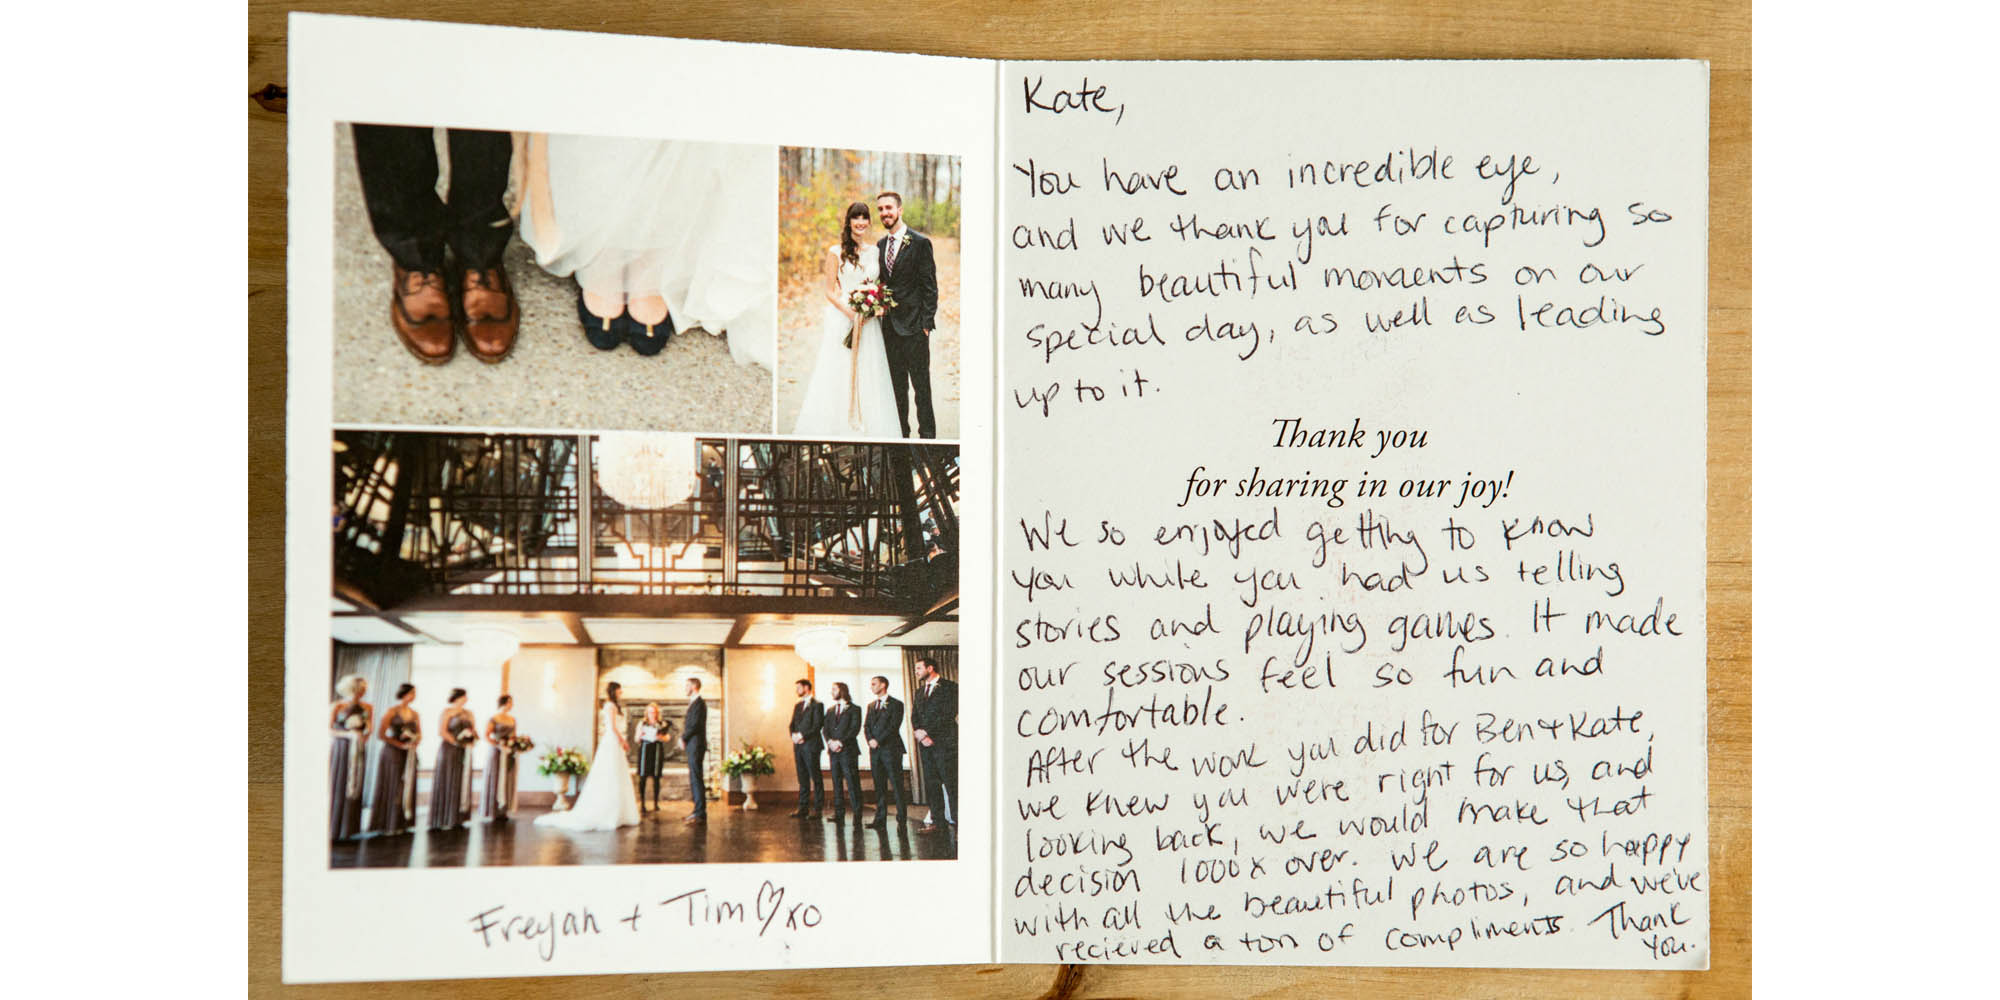 Freyah + Tim ♡ xo
Kate,
You have an incredible eye,
and we thank you for capturing so
many beautiful moments on our
special day, as well as leading
up to it.
Thank you
for sharing in our joy!
We so enjoyed getting to know
you while you had us telling
stories and playing games. It made
our sessions feel so fun and
comfortable.
After the work you did for Ben + Kate,
we knew you were right for us, and
looking back, we would make that
decision 1000x over. We are so happy
with all the beautiful photos, and we've
recieved a ton of compliments. Thank
you.